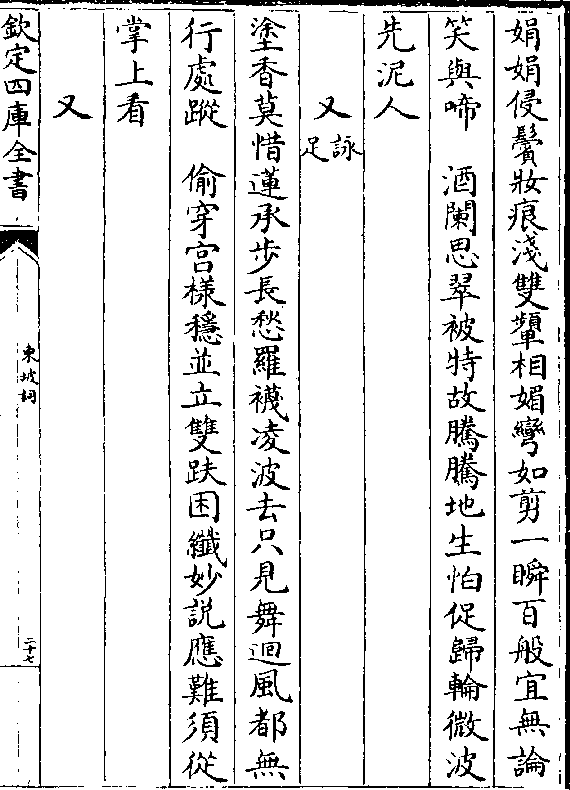 娟娟侵鬢妝痕淺雙顰相媚彎如剪一瞬百般宜無論
笑與啼　酒闌思翠被特故騰騰地生怕促歸輪微波
先泥人
又詠足
塗香莫惜蓮承步長愁羅襪凌波去只見舞迴風都無
行處蹤　偷穿宮樣穩並立雙趺困纖妙説應難須從
掌上看
又
欽定四庫全書
東坡詞
二十七